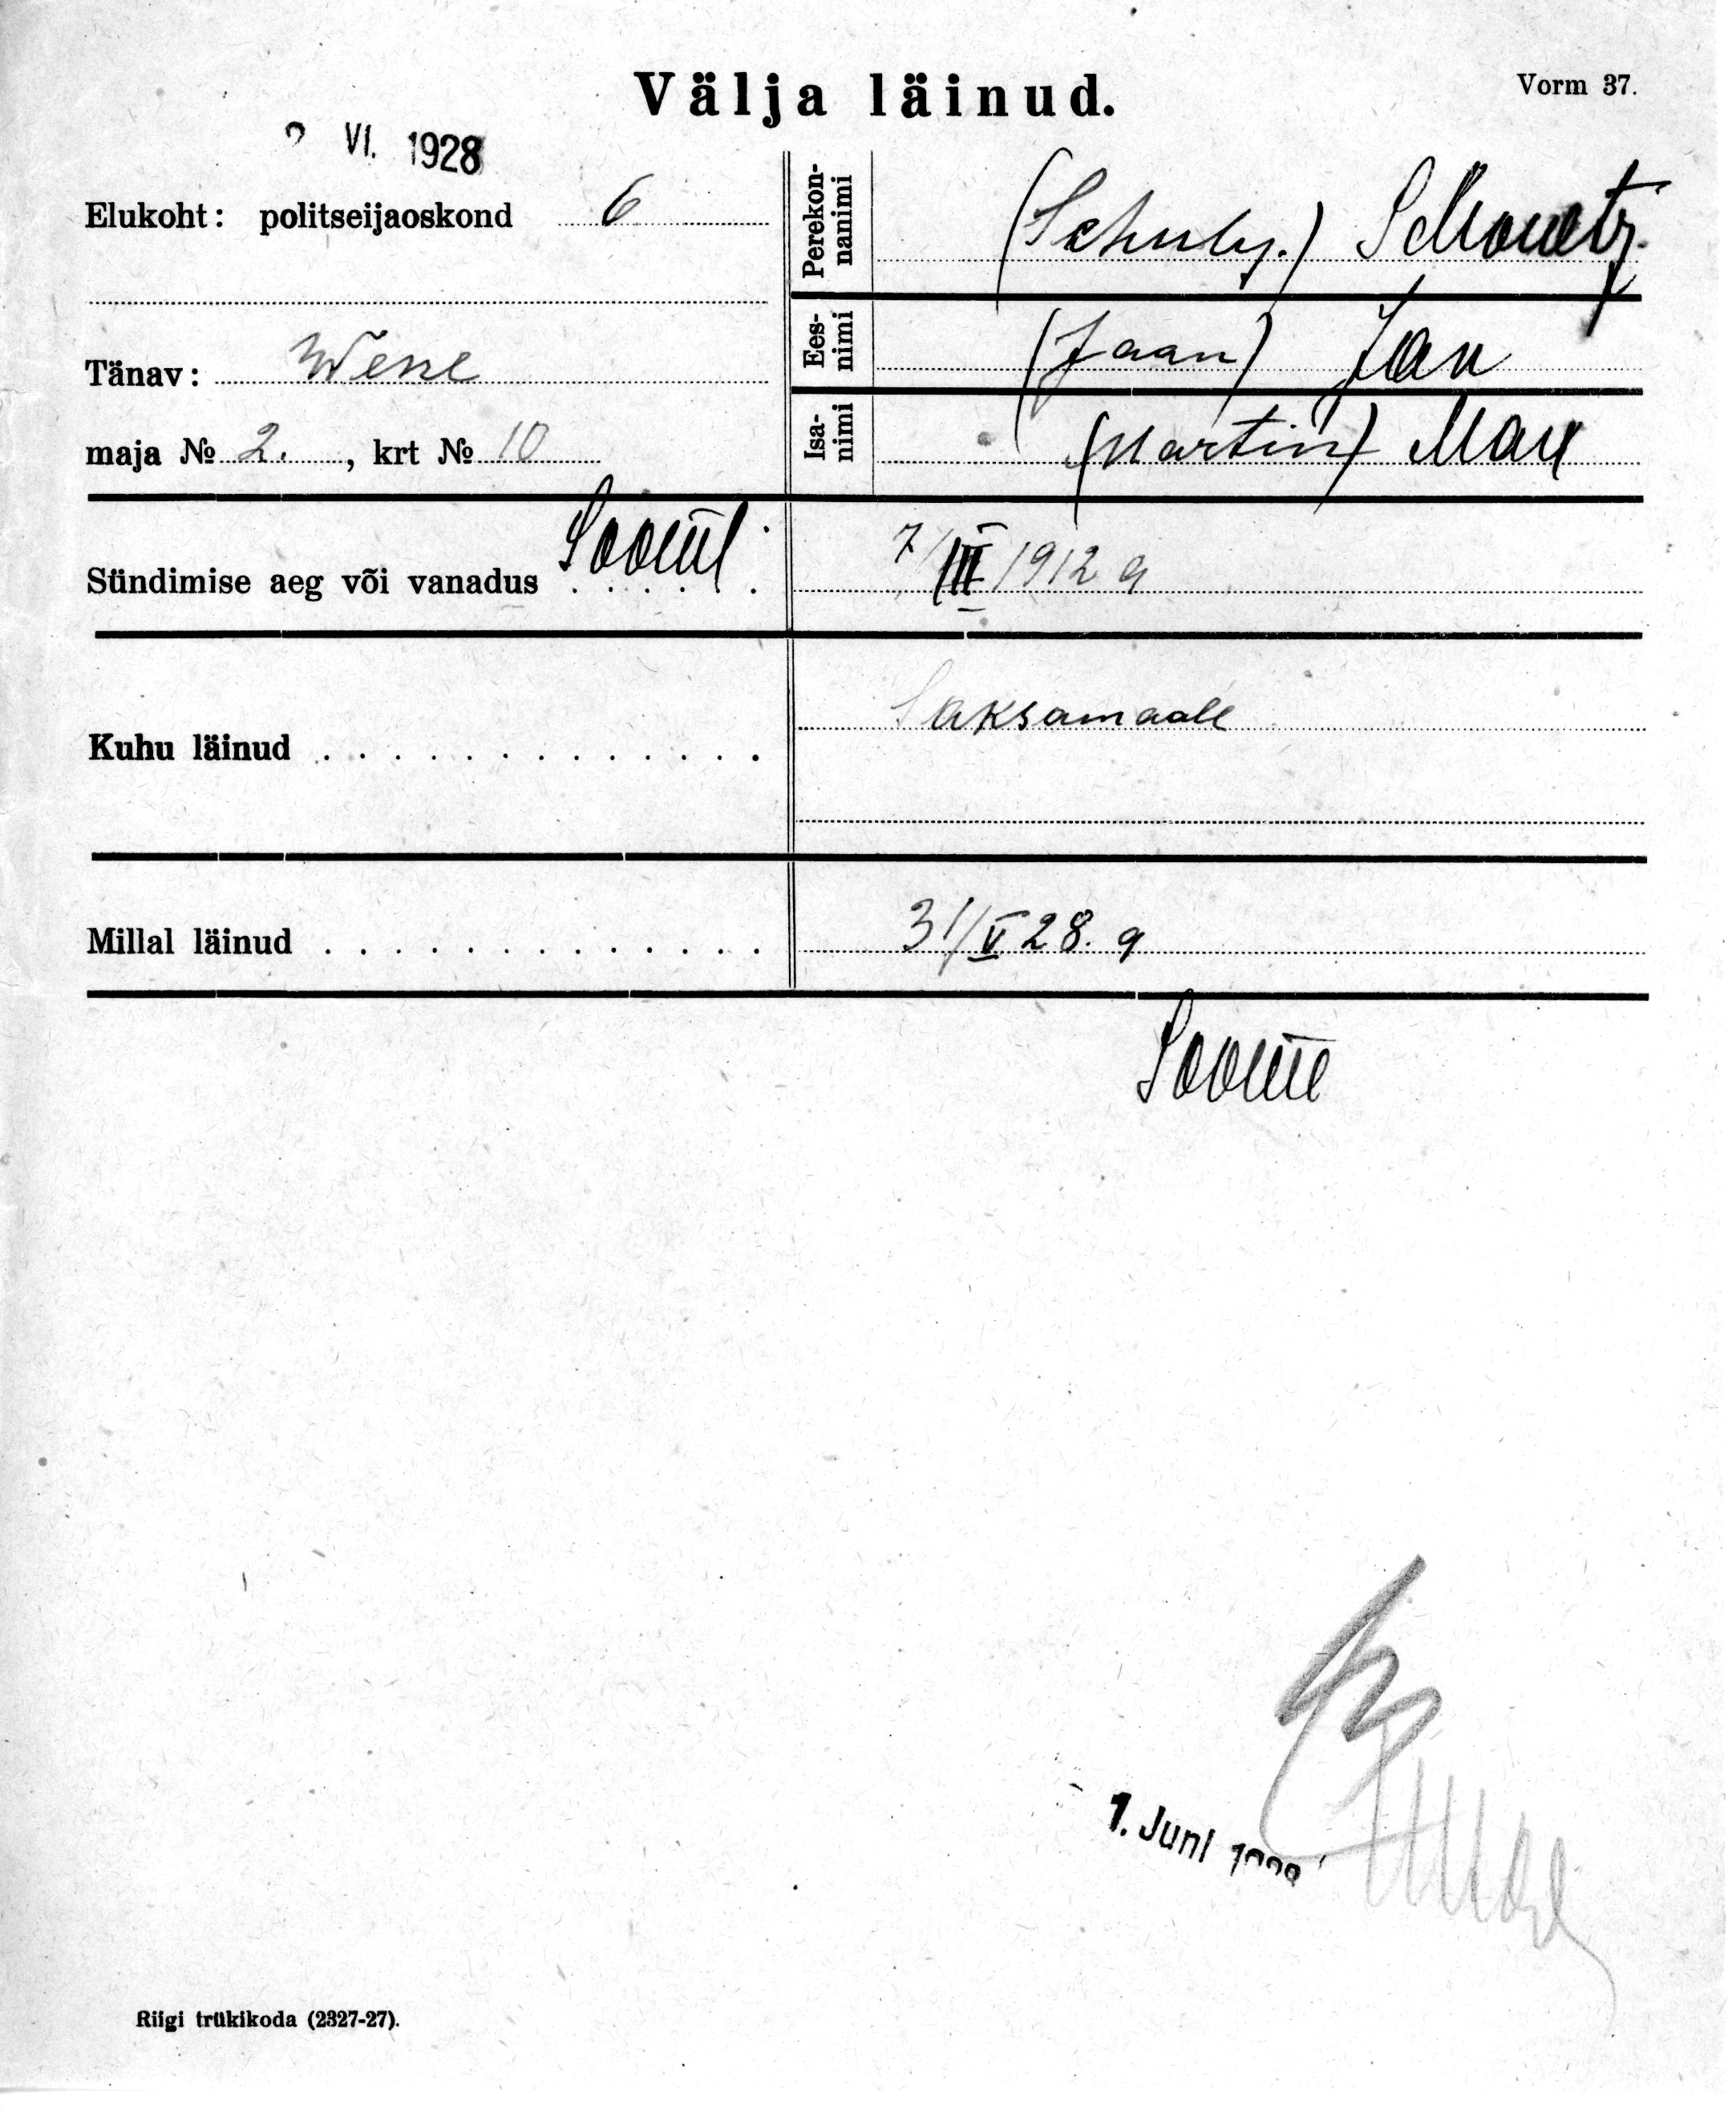 Välja läinud.
Vorm 37.
VI. 1928
Elukoht: politseijaoskond 6
Perekon-
nanimi
(Schulz.)
Tänav: Wene
Ees-
nimi
(Jaan) Jan
maja № 2. , krt № 10
Isa-
nimi
(Martin) Max
Sündimise aeg või vanadus
7/III 1912 a
Kuhu läinud
Saksamaale
Millal läinud
31/V 28. a
1. Juni
Riigi trükikoda (2327-27).